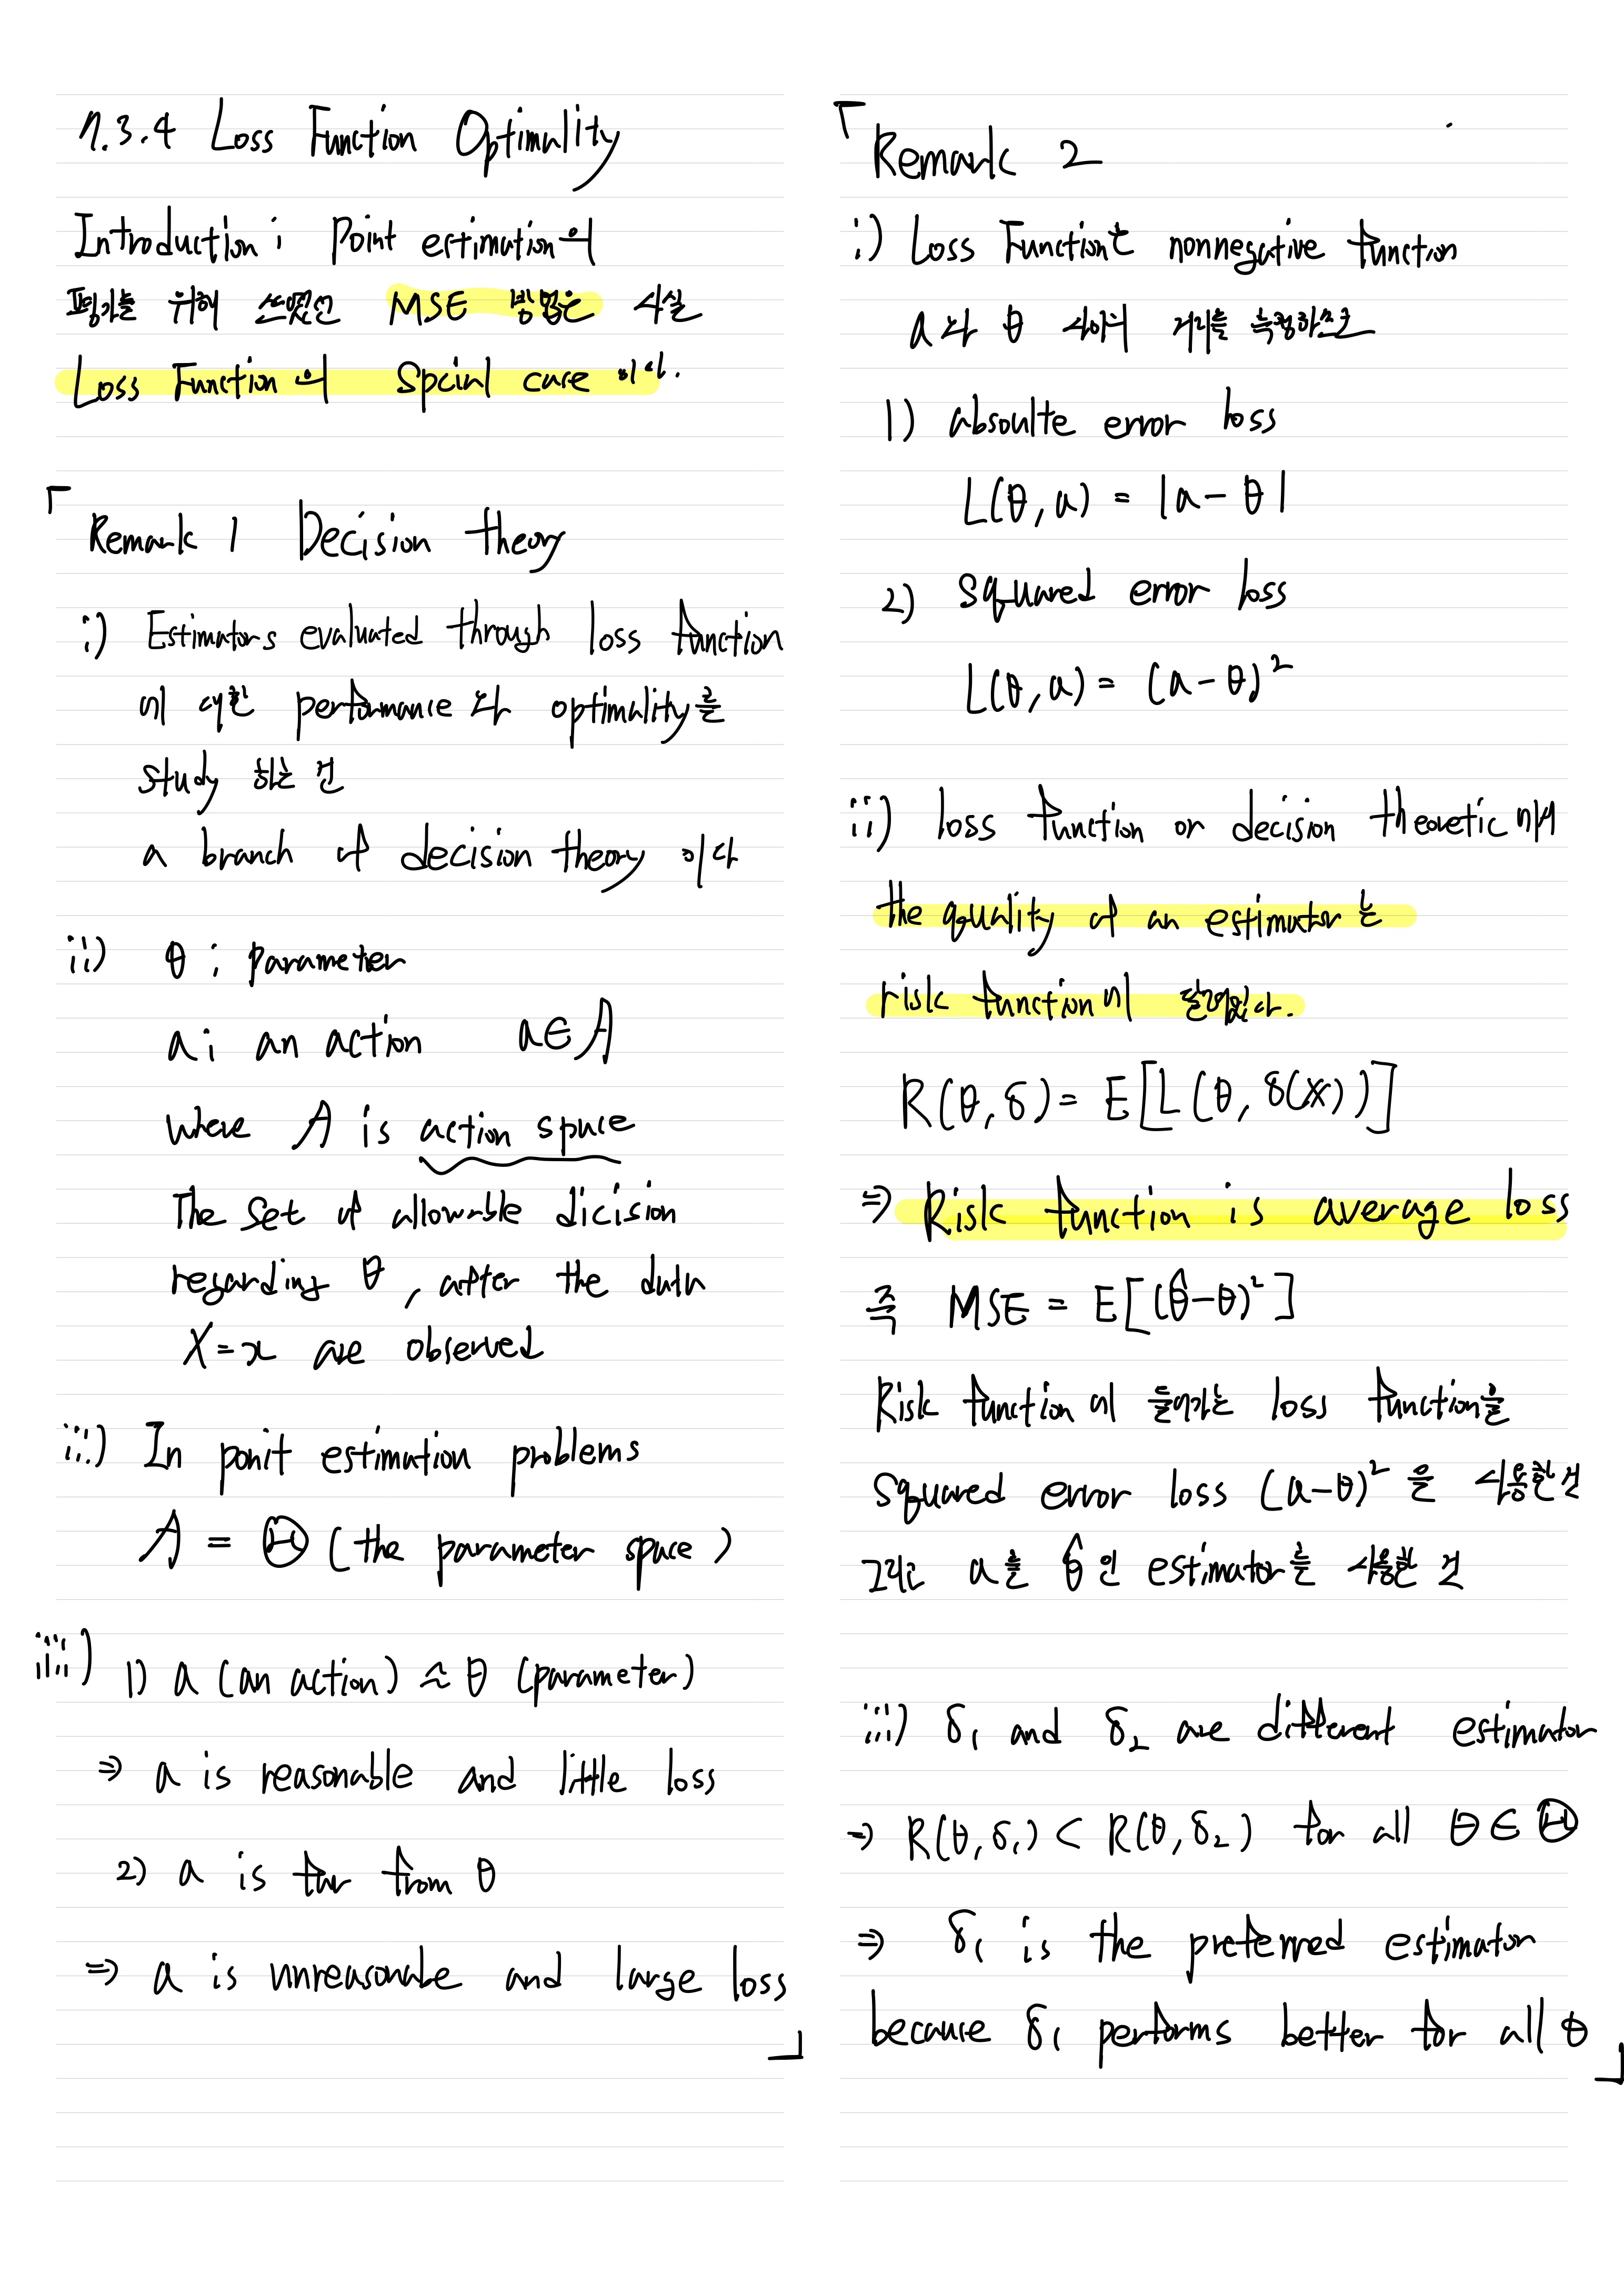 7.3.4 Loss Function Optimality
Introduction : Point estimation의
평가를 위해 쓰였던 MSE 방법은 사실
Loss Function의 Spcial case 이다.
「Remark 1 Decision theory
i) Estimators evaluated through loss function
에 대한 performance 와 optimality를
study 하는 건
a branch of decision theory 이다
ii) θ : parameter
a : an action a∈A
where A is action space
The set of allowable dicision
regarding θ, after the data
X=x are observed
iii) In ponit estimation problems
A = Θ (the parameter space)
iiii) 1) a (an action) ≃ θ (parameter)
⇒ a is reasonable and little loss
2) a is far from θ
⇒ a is unreasonable and large loss
」
「Remark 2
i) Loss Function는 nonnegative function
a 와 θ 사이의 거리를 측정함으로
1) absoulte error loss
L(θ, a) = |a - θ|
2) Squared error loss
L(θ, a) = (a - θ)²
ii) loss function or decision theoretic 에서
the quality of an estimator 는
risk function에 달려있다.
R(θ, δ) = E[L(θ, δ(X))]
⇒ Risk function is average loss
즉 MSE = E[(θ̂-θ)²]
Risk function에 들어가는 loss function을
Squared error loss (a-θ)² 을 사용한 것
그리고 a를 θ̂ 인 estimator를 사용한 것
iii) δ₁ and δ₂ are different estimator
⇒ R(θ, δ₁) < R(θ, δ₂) for all θ ∈ Θ
⇒ δ₁ is the preferred estimator
because δ₁ performs better for all θ
」